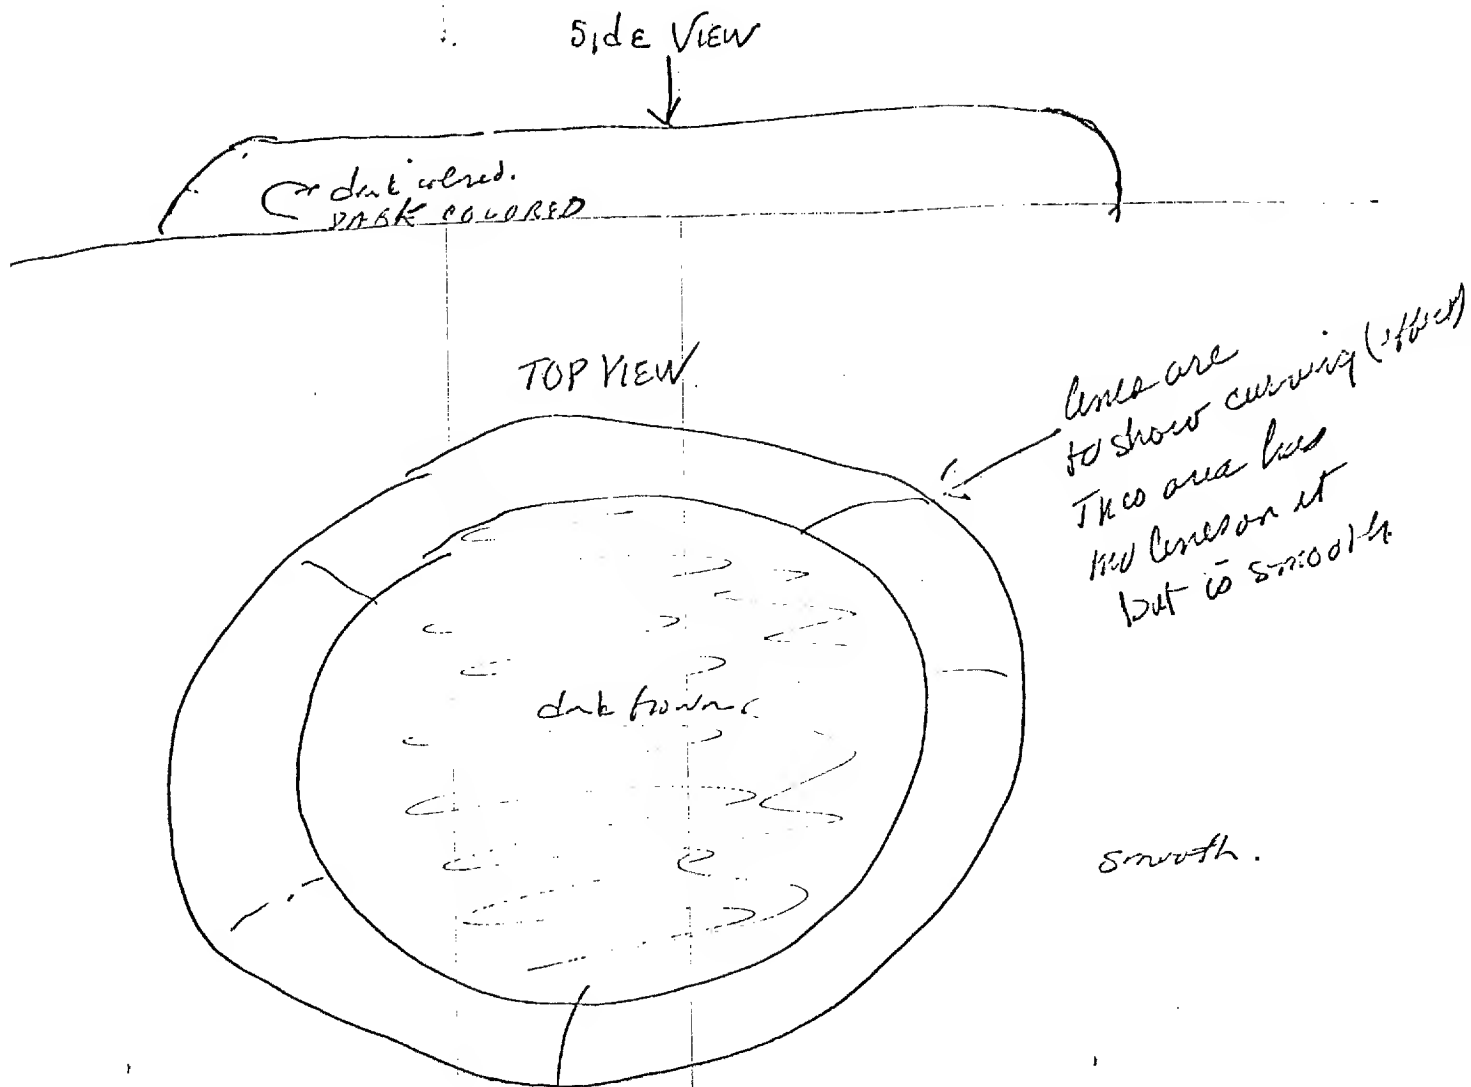 SidE VIEW
dark colored.
DARK COLORED
TOP VIEW
lines are
to show curving (effect)
This area has
no lines on it
but is smooth
dark brown
smooth.